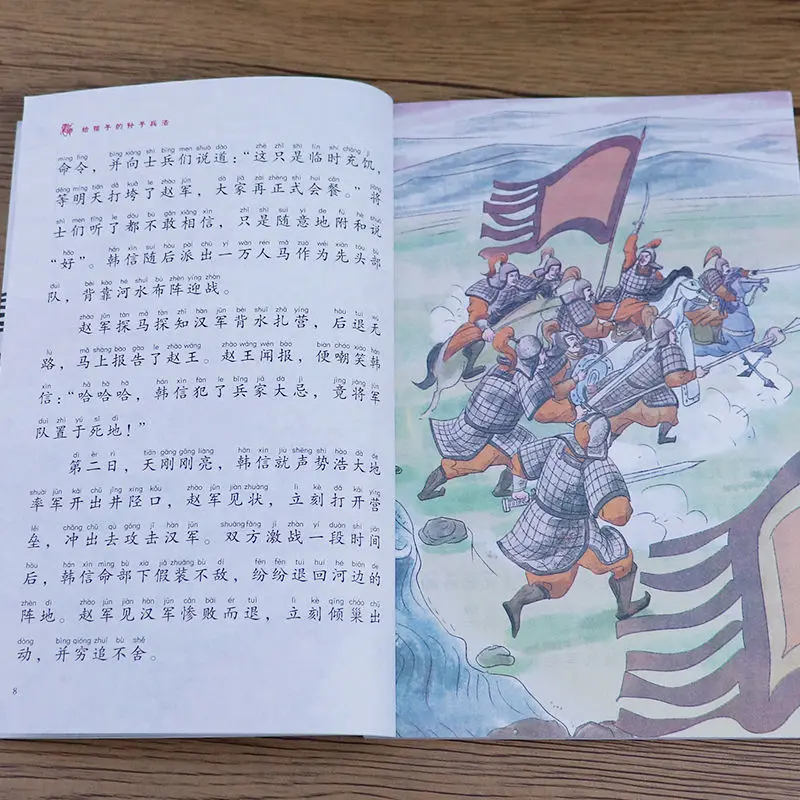 给孩子的孙子兵法
mìng lìng bìng xiàng shì bīng men shuō dào zhè zhǐ shì lín shí chōng jī
命令，并向士兵们说道：“这只是临时充饥，
děng míng tiān dǎ kuǎ le zhào jūn dà jiā zài zhèng shì huì cān jiàng
等明天打垮了赵军，大家再正式会餐。”将
shì men tīng le dōu bù gǎn xiāng xìn zhǐ shì suí yì de fù hè shuō
士们听了都不敢相信，只是随意地附和说
hǎo hán xìn suí hòu pài chū yí wàn rén mǎ zuò wéi xiān tóu bù
“好”。韩信随后派出一万人马作为先头部
duì bèi kào hé shuǐ bù zhèn yíng zhàn
队，背靠河水布阵迎战。
zhào jūn tàn mǎ tàn zhī hàn jūn bèi shuǐ zhā yíng hòu tuì wú
赵军探马探知汉军背水扎营，后退无
lù mǎ shàng bào gào le zhào wáng zhào wáng wén bào biàn cháo xiào hán
路，马上报告了赵王。赵王闻报，便嘲笑韩
xìn hā hā hā hán xìn fàn le bīng jiā dà jì jìng jiàng jūn
信：“哈哈哈，韩信犯了兵家大忌，竟将军
duì zhì yú sǐ dì
队置于死地！”
dì èr rì tiān gāng gāng liàng hán xìn jiù shēng shì hào dà de
第二日，天刚刚亮，韩信就声势浩大地
shuài jūn kāi chū jǐng xíng kǒu zhào jūn jiàn zhuàng lì kè dǎ kāi yíng
率军开出井陉口，赵军见状，立刻打开营
lěi chōng chū qù gōng jī hàn jūn shuāng fāng jī zhàn yí duàn shí jiān
垒，冲出去攻击汉军。双方激战一段时间
hòu hán xìn mìng bù xià jiǎ zhuāng bù dí fēn fēn tuì huí hé biān de
后，韩信命部下假装不敌，纷纷退回河边的
zhèn dì zhào jūn jiàn hàn jūn cǎn bài ér tuì lì kè qīng cháo chū
阵地。赵军见汉军惨败而退，立刻倾巢出
dòng bìng qióng zhuī bù shě
动，并穷追不舍。
8